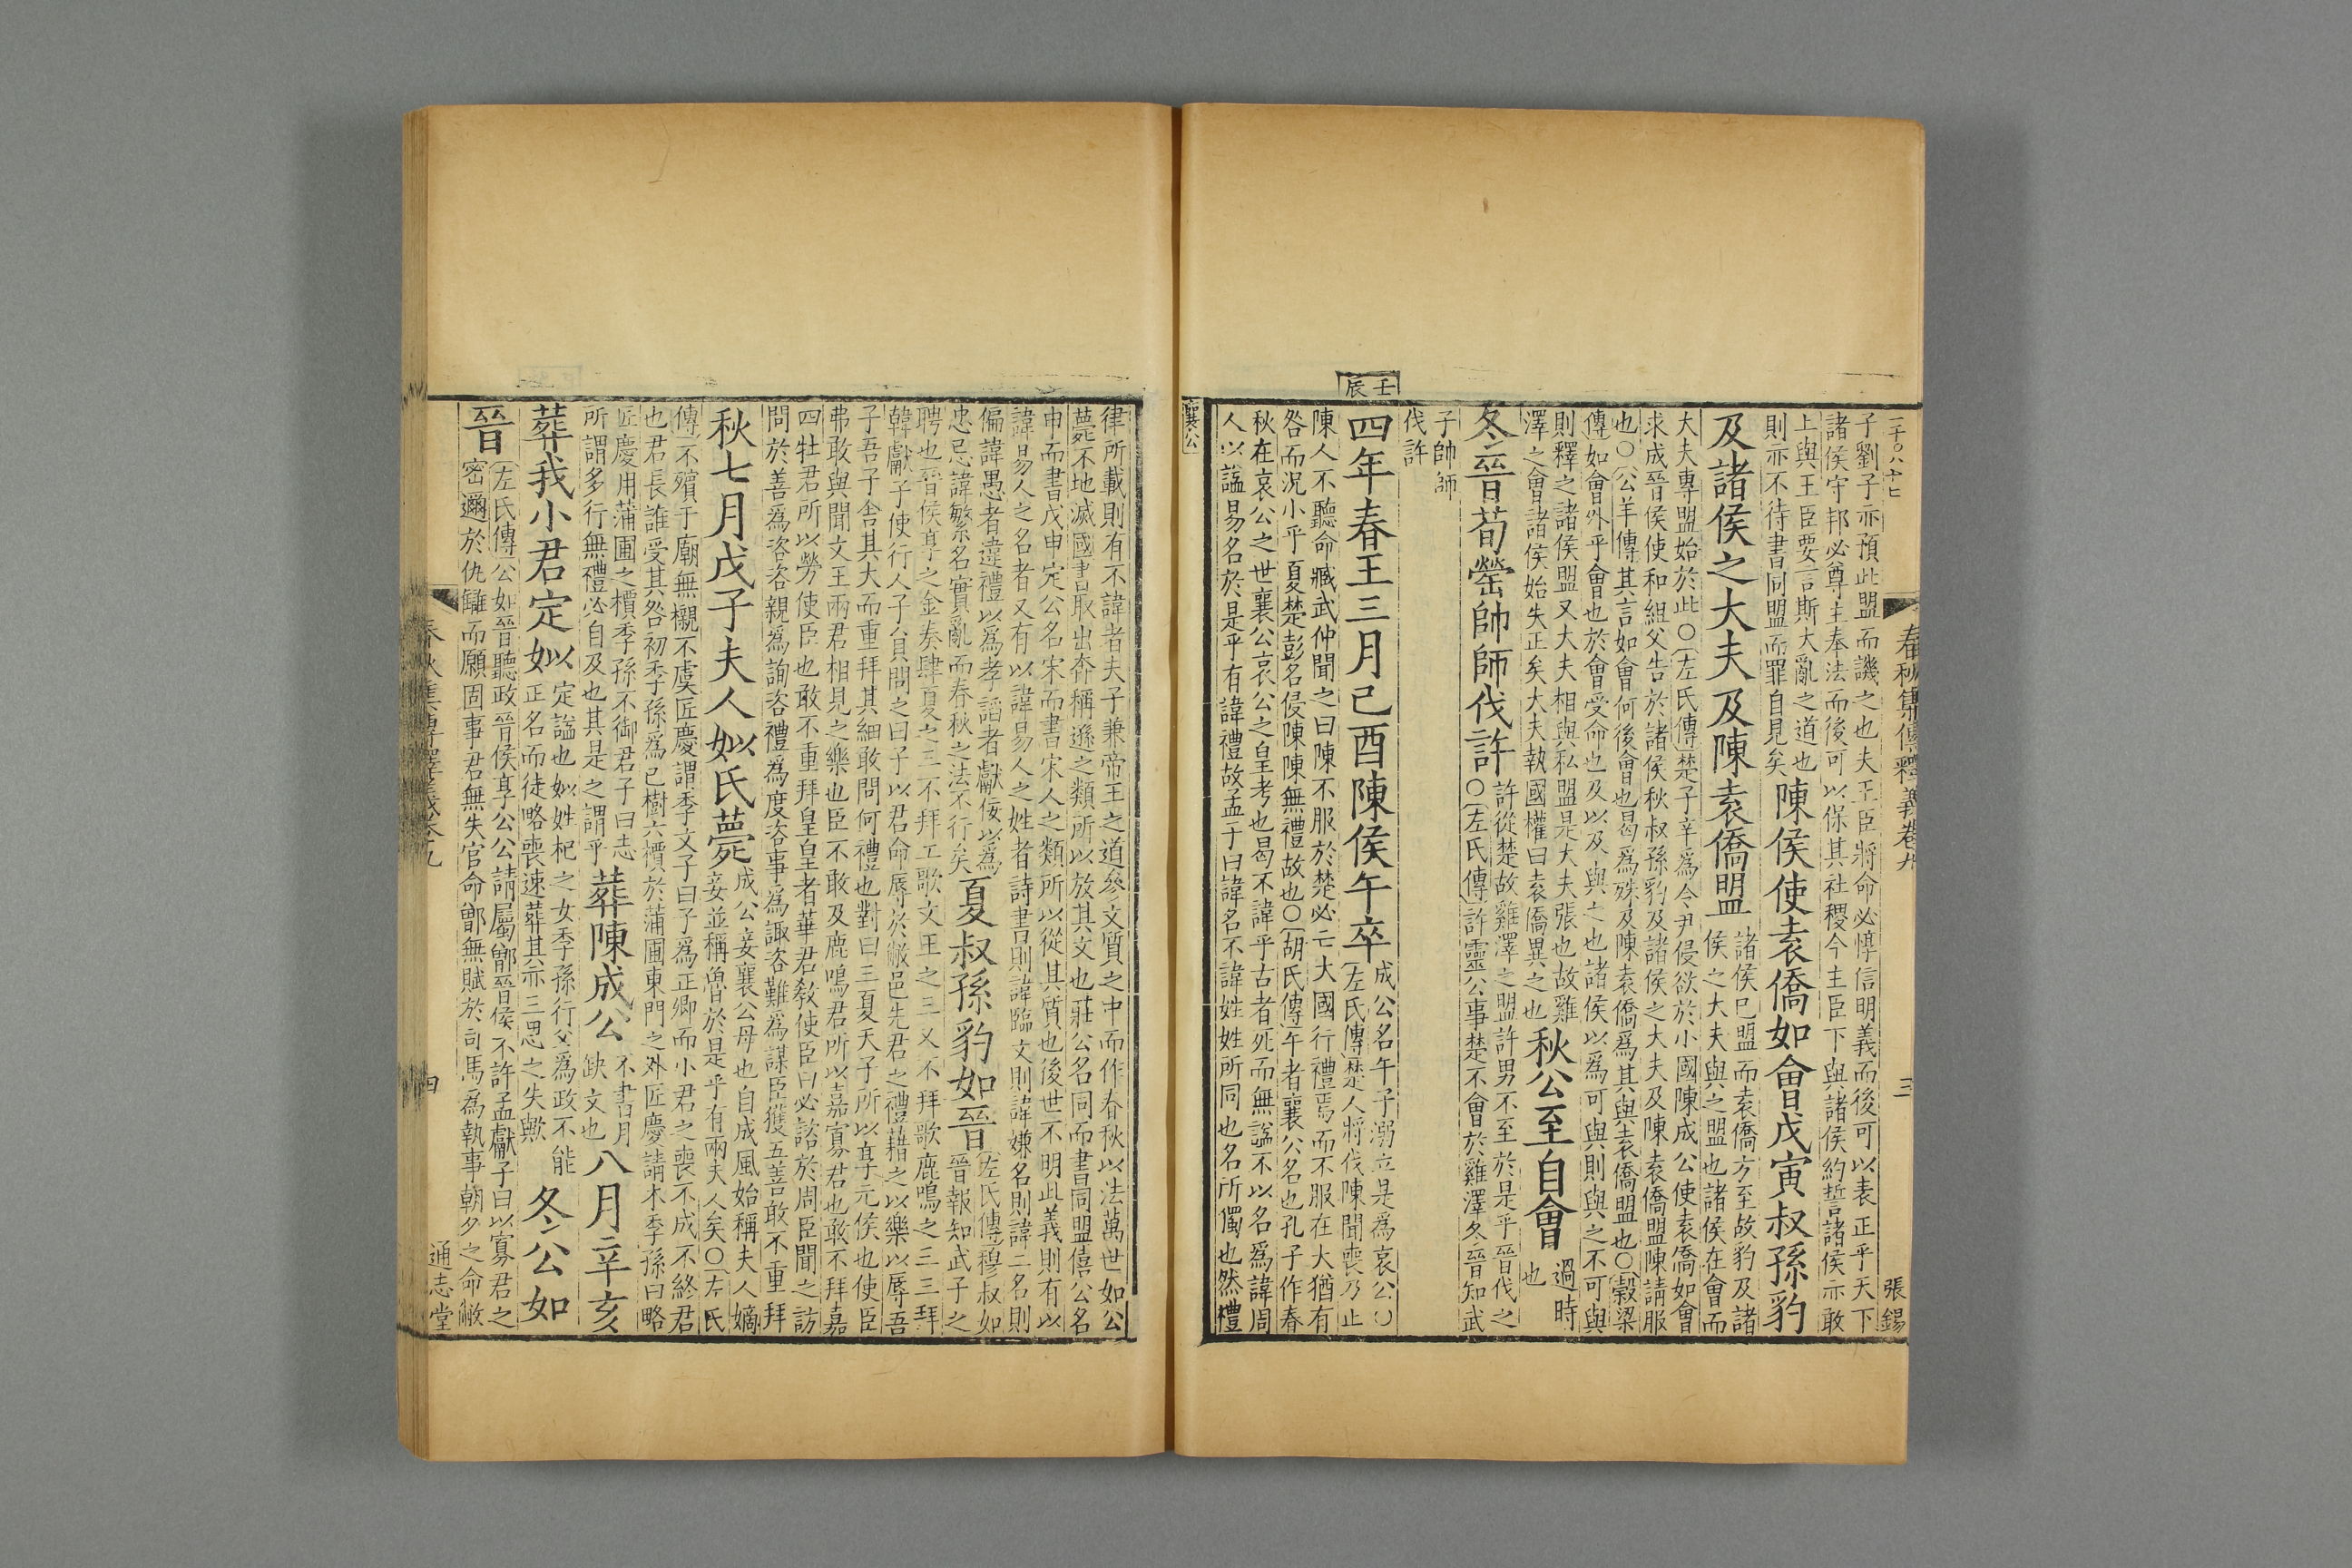 二千〇八十七
春秋集傳釋義卷九
三
張錫
子劉子亦預此盟而譏之也夫王臣將命必惇信明義而後可以表正乎天下
諸侯守邦必尊主奉法而後可以保其社稷今主臣下與諸侯約誓諸侯亦敢
上與王臣要言斯大亂之道也
則亦不待書同盟而罪自見矣
陳侯使袁僑如會戊寅叔孫豹
及諸侯之大夫及陳袁僑盟
諸侯已盟而袁僑方至故豹及諸
侯之大夫與之盟也諸侯在會而
大夫專盟始於此〇左氏傳楚子辛為令尹侵欲於小國陳成公使袁僑如會
求成晉侯使和組父告於諸侯秋叔孫豹及諸侯之大夫及陳袁僑盟陳請服
也〇公羊傳其言如會何後會也曷為殊及陳袁僑為其與袁僑盟也〇穀梁
傳如會外乎會也於會受命也及以及與之也諸侯以為可與則與之不可與
則釋之諸侯盟又大夫相與私盟是大夫張也故雞
澤之會諸侯始失正矣大夫執國權曰袁僑異之也
秋公至自會
過時
也
冬晉荀罃帥師伐許
許從楚故雞澤之盟許男不至於是乎晉伐之
〇左氏傳許靈公事楚不會於雞澤冬晉知武
子帥師
伐許
壬
辰
四年春王三月己酉陳侯午卒
成公名午子溺立是為哀公〇
左氏傳楚人將伐陳聞喪乃止
陳人不聽命臧武仲聞之曰陳不服於楚必亡大國行禮焉而不服在大猶有
咎而況小乎夏楚彭名侵陳陳無禮故也〇胡氏傳午者襄公名也孔子作春
秋在哀公之世襄公哀公之皇考也曷不諱乎古者死而無謚不以名為諱周
人以謚易名於是乎有諱禮故孟子曰諱名不諱姓姓所同也名所獨也然禮
襄公
律所載則有不諱者夫子兼帝王之道參文質之中而作春秋以法萬世如公
薨不地滅國書取出奔稱遜之類所以放其文也莊公名同而書同盟僖公名
申而書戊申定公名宋而書宋人之類所以從其質也後世不明此義則有以
諱易人之名者又有以諱易人之姓者詩書則諱臨文則諱嫌名則諱二名則
偏諱愚者違禮以為孝諂者獻佞以為
忠忌諱繁名實亂而春秋之法不行矣
夏叔孫豹如晉
左氏傳穆叔如
晉報知武子之
聘也晉侯享之金奏肆夏之三不拜工歌文王之三又不拜歌鹿鳴之三三拜
韓獻子使行人子員問之曰子以君命辱於敝邑先君之禮藉之以樂以辱吾
子吾子舍其大而重拜其細敢問何禮也對曰三夏天子所以享元侯也使臣
弗敢與聞文王兩君相見之樂也臣不敢及鹿鳴君所以嘉寡君也敢不拜嘉
四牡君所以勞使臣也敢不重拜皇皇者華君教使臣曰必諮於周臣聞之訪
問於善為咨咨親為詢咨禮為度咨事為諏咨難為謀臣獲五善敢不重拜
秋七月戊子夫人姒氏薨
成公妾襄公母也自成風始稱夫人嫡
妾並稱魯於是乎有兩夫人矣〇左氏
傳不殯于廟無櫬不虞匠慶謂季文子曰子為正卿而小君之喪不成不終君
也君長誰受其咎初季孫為己樹六檟於蒲圃東門之外匠慶請木季孫曰略
匠慶用蒲圃之檟季孫不御君子曰志
所謂多行無禮必自及也其是之謂乎
葬陳成公
不書月
缺文也
八月辛亥
葬我小君定姒
定謚也姒姓杞之女季孫行父為政不能
正名而徒略喪速葬其亦三思之失歟
冬公如
晉
左氏傳公如晉聽政晉侯享公公請屬鄫晉侯不許孟獻子曰以寡君之
密邇於仇讎而願固事君無失官命鄫無賦於司馬為執事朝夕之命敝
春秋集傳釋義卷九
四
通志堂